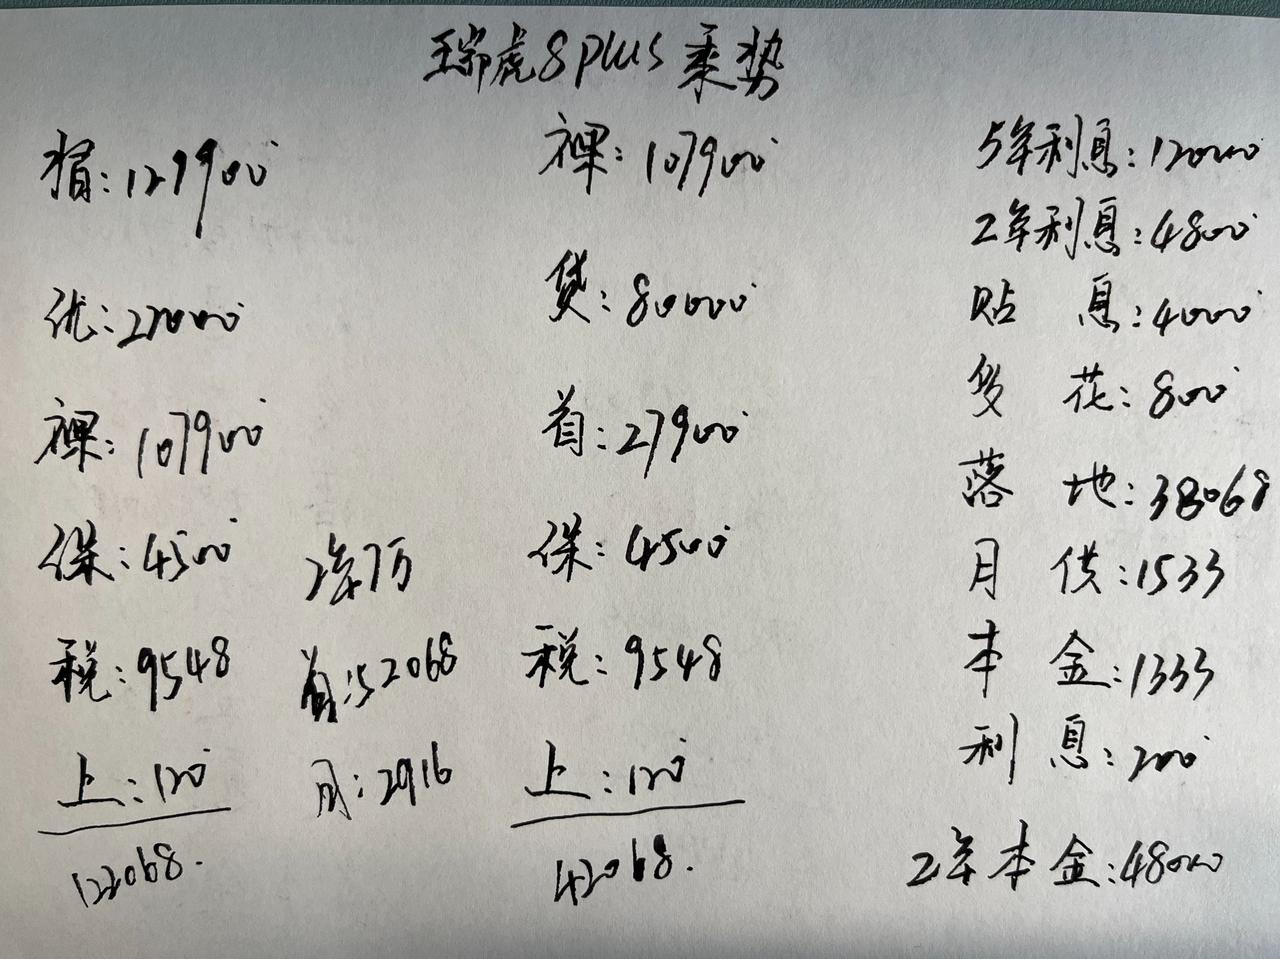 瑞虎8plus乘势
指:129900
优:22000
裸:107900
保:4500
税:9548
上:120
122068.
2年7万
首:52068
月:2916
裸:107900
贷:80000
首:27900
保:4500
税:9548
上:120
42068.
5年利息:12000
2年利息:4800
贴息:4000
多花:800
落地:38068
月供:1533
本金:1333
利息:200
2年本金:48000